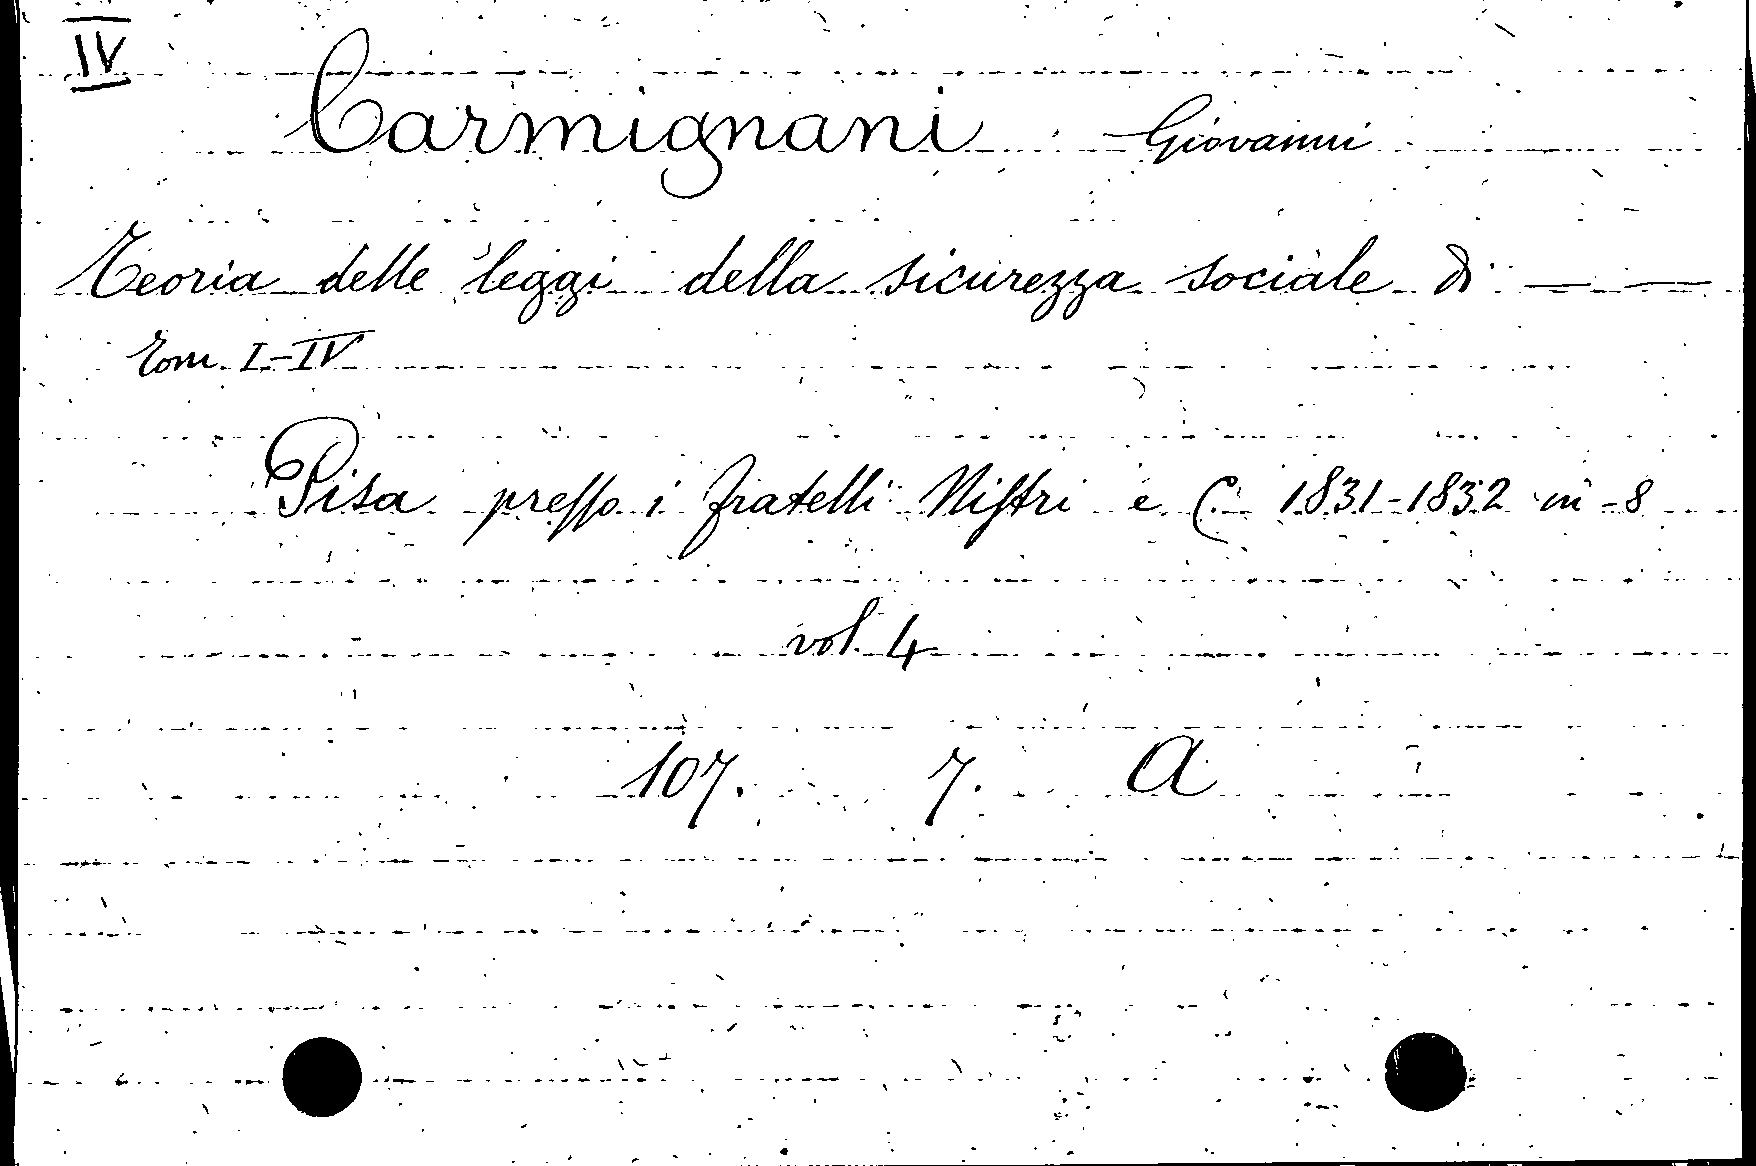 IV
Carmignani Giovanni
Teoria delle leggi della sicurezza sociale di — —
Tom. I-IV
Pisa presso i fratelli Nistri e C. 1831-1832 in-8
vol. 4
107. 7. A